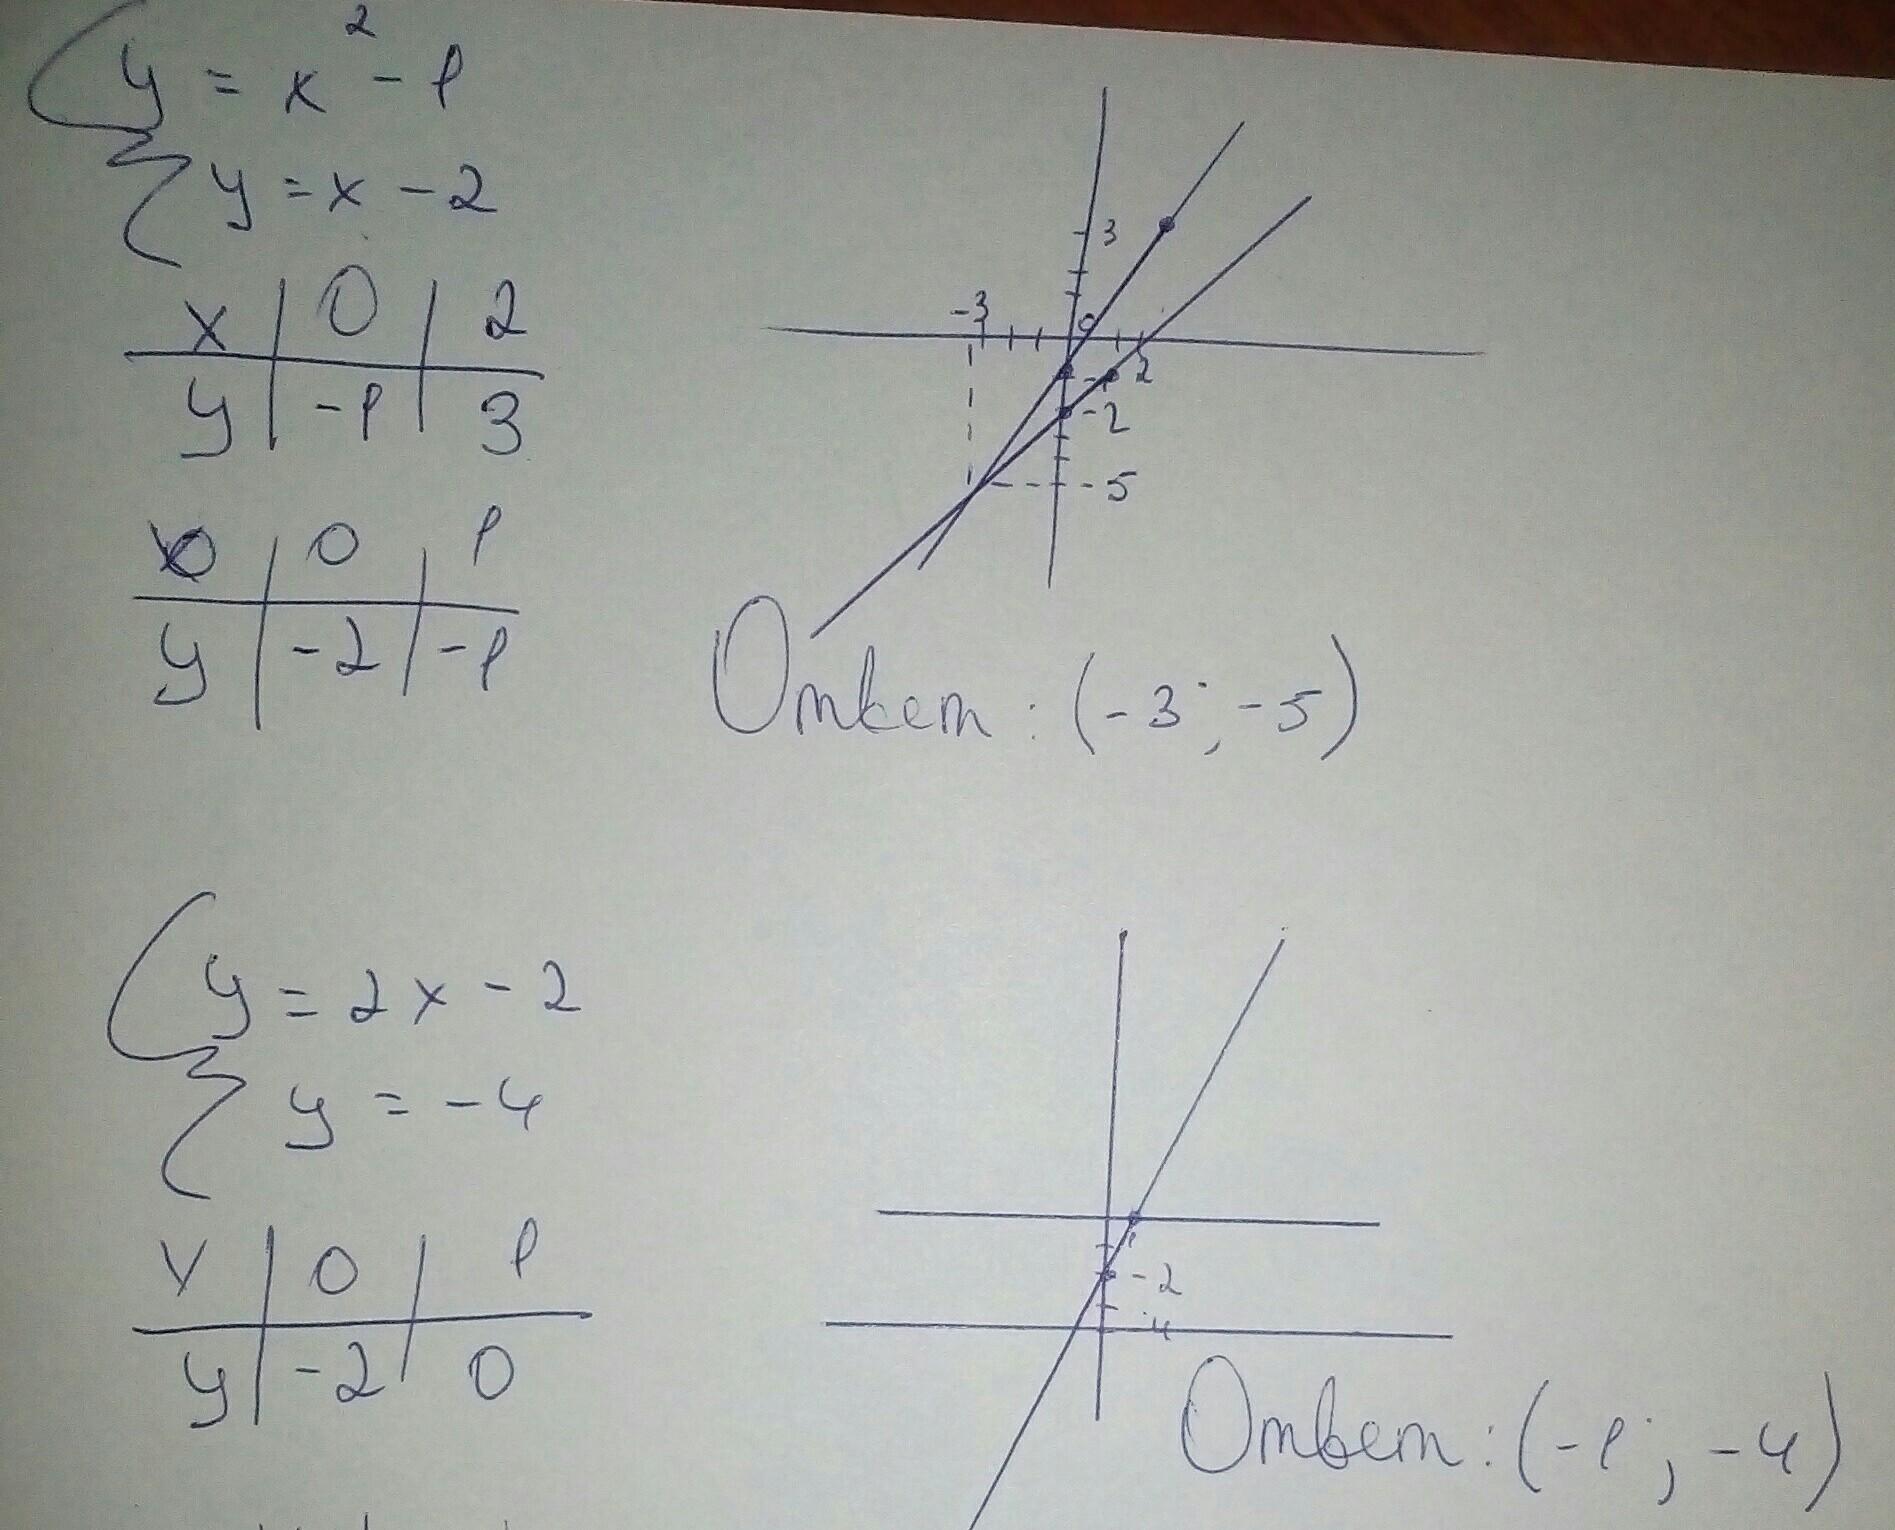 y = x² - 1
y = x - 2
x | 0 | 2
y | -1 | 3
x | 0 | 1
y | -2 | -1
3
-3
0
-1 2
-2
-5
Ответ: (-3; -5)
y = 2x - 2
y = -4
x | 0 | 1
y | -2 | 0
1
-2
-4
Ответ: (-1; -4)